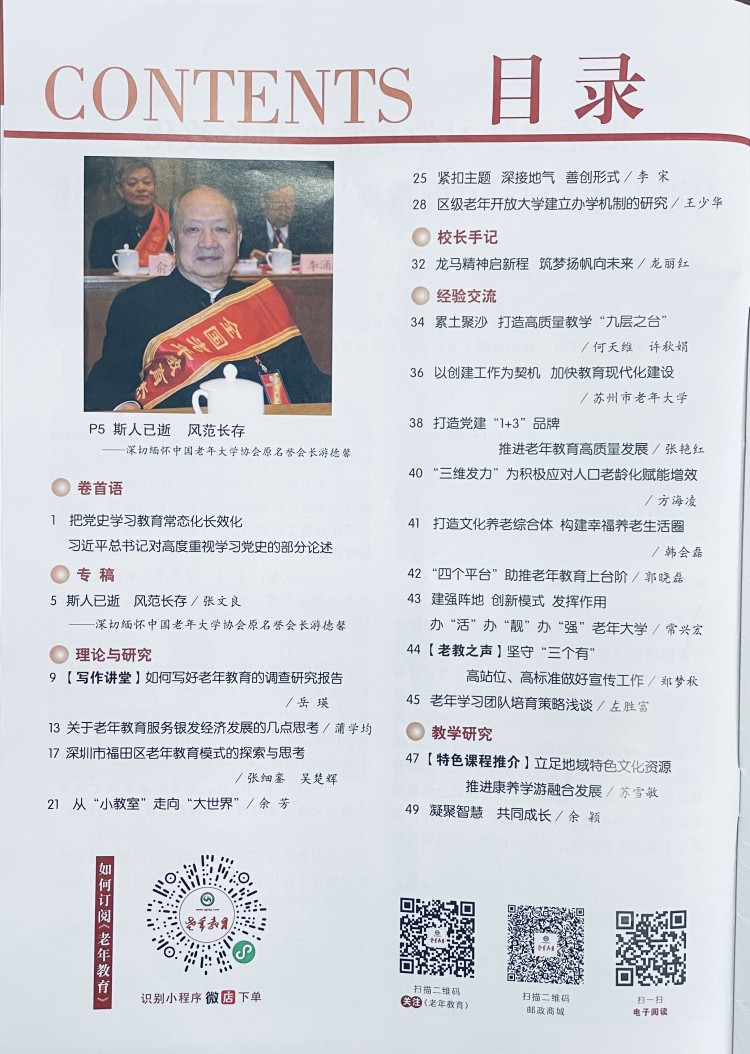 CONTENTS 目录
全国老年教育
P5 斯人已逝 风范长存
——深切缅怀中国老年大学协会原名誉会长游德馨
卷首语
1 把党史学习教育常态化长效化
习近平总书记对高度重视学习党史的部分论述
专 稿
5 斯人已逝 风范长存/张文良
——深切缅怀中国老年大学协会原名誉会长游德馨
理论与研究
9【写作讲堂】如何写好老年教育的调查研究报告
/岳 瑛
13 关于老年教育服务银发经济发展的几点思考/蒲学均
17 深圳市福田区老年教育模式的探索与思考
/张细銮 吴楚辉
21 从“小教室”走向“大世界”/余 芳
25 紧扣主题 深接地气 善创形式/李 宋
28 区级老年开放大学建立办学机制的研究/王少华
校长手记
32 龙马精神启新程 筑梦扬帆向未来/龙丽红
经验交流
34 累土聚沙 打造高质量教学“九层之台”
/何天维 许秋娟
36 以创建工作为契机 加快教育现代化建设
/苏州市老年大学
38 打造党建“1+3”品牌
推进老年教育高质量发展/张艳红
40 “三维发力”为积极应对人口老龄化赋能增效
/方海凌
41 打造文化养老综合体 构建幸福养老生活圈
/韩会磊
42 “四个平台”助推老年教育上台阶/郭晓磊
43 建强阵地 创新模式 发挥作用
办“活”办“靓”办“强”老年大学/常兴宏
44【老教之声】坚守“三个有”
高站位、高标准做好宣传工作/郑梦秋
45 老年学习团队培育策略浅谈/左胜富
教学研究
47【特色课程推介】立足地域特色文化资源
推进康养学游融合发展/苏雪敏
49 凝聚智慧 共同成长/余 颖
如何订阅《老年教育》
老年教育
识别小程序 微店 下单
扫描二维码
关注《老年教育》
扫描二维码
邮政商城
扫一扫
电子阅读